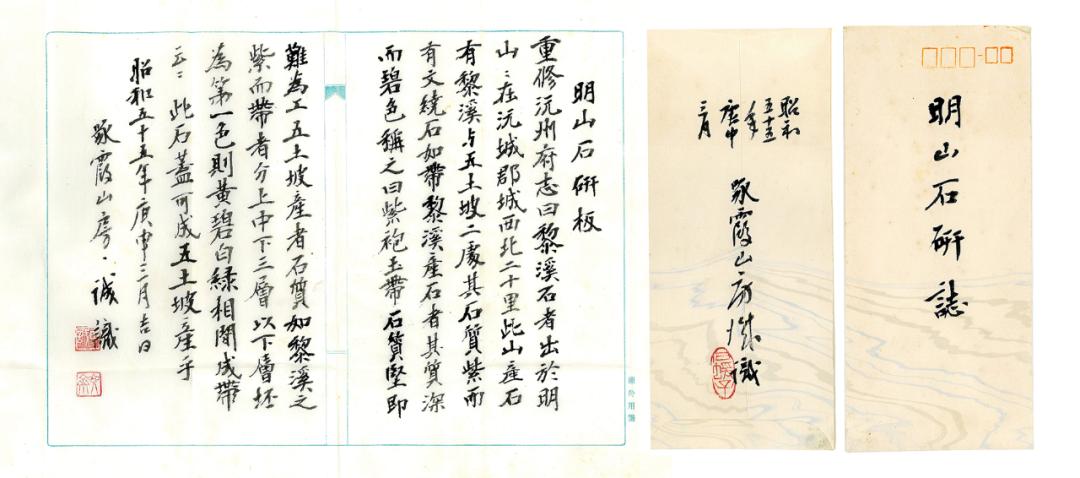 明山石研誌
昭和
五十五
年
庚申
三月
霞山房 誠識
明山石研板
重修沅州府志曰黎溪石者出於明
山〻在沅城郡城西北二十里此山産石
有黎溪与五土坡二處其石質紫而
有文繞石如帶黎溪産石者其質深
而碧色稱之曰紫袍玉帶石質堅即
難為工五土坡産者石質如黎溪之
紫而帶者分上中下三層以下層坯
為第一色則黄碧白緑相間成帶
云〻此石蓋可成五土坡産乎
昭和五十五年庚申三月吉日
霞山房、誠識